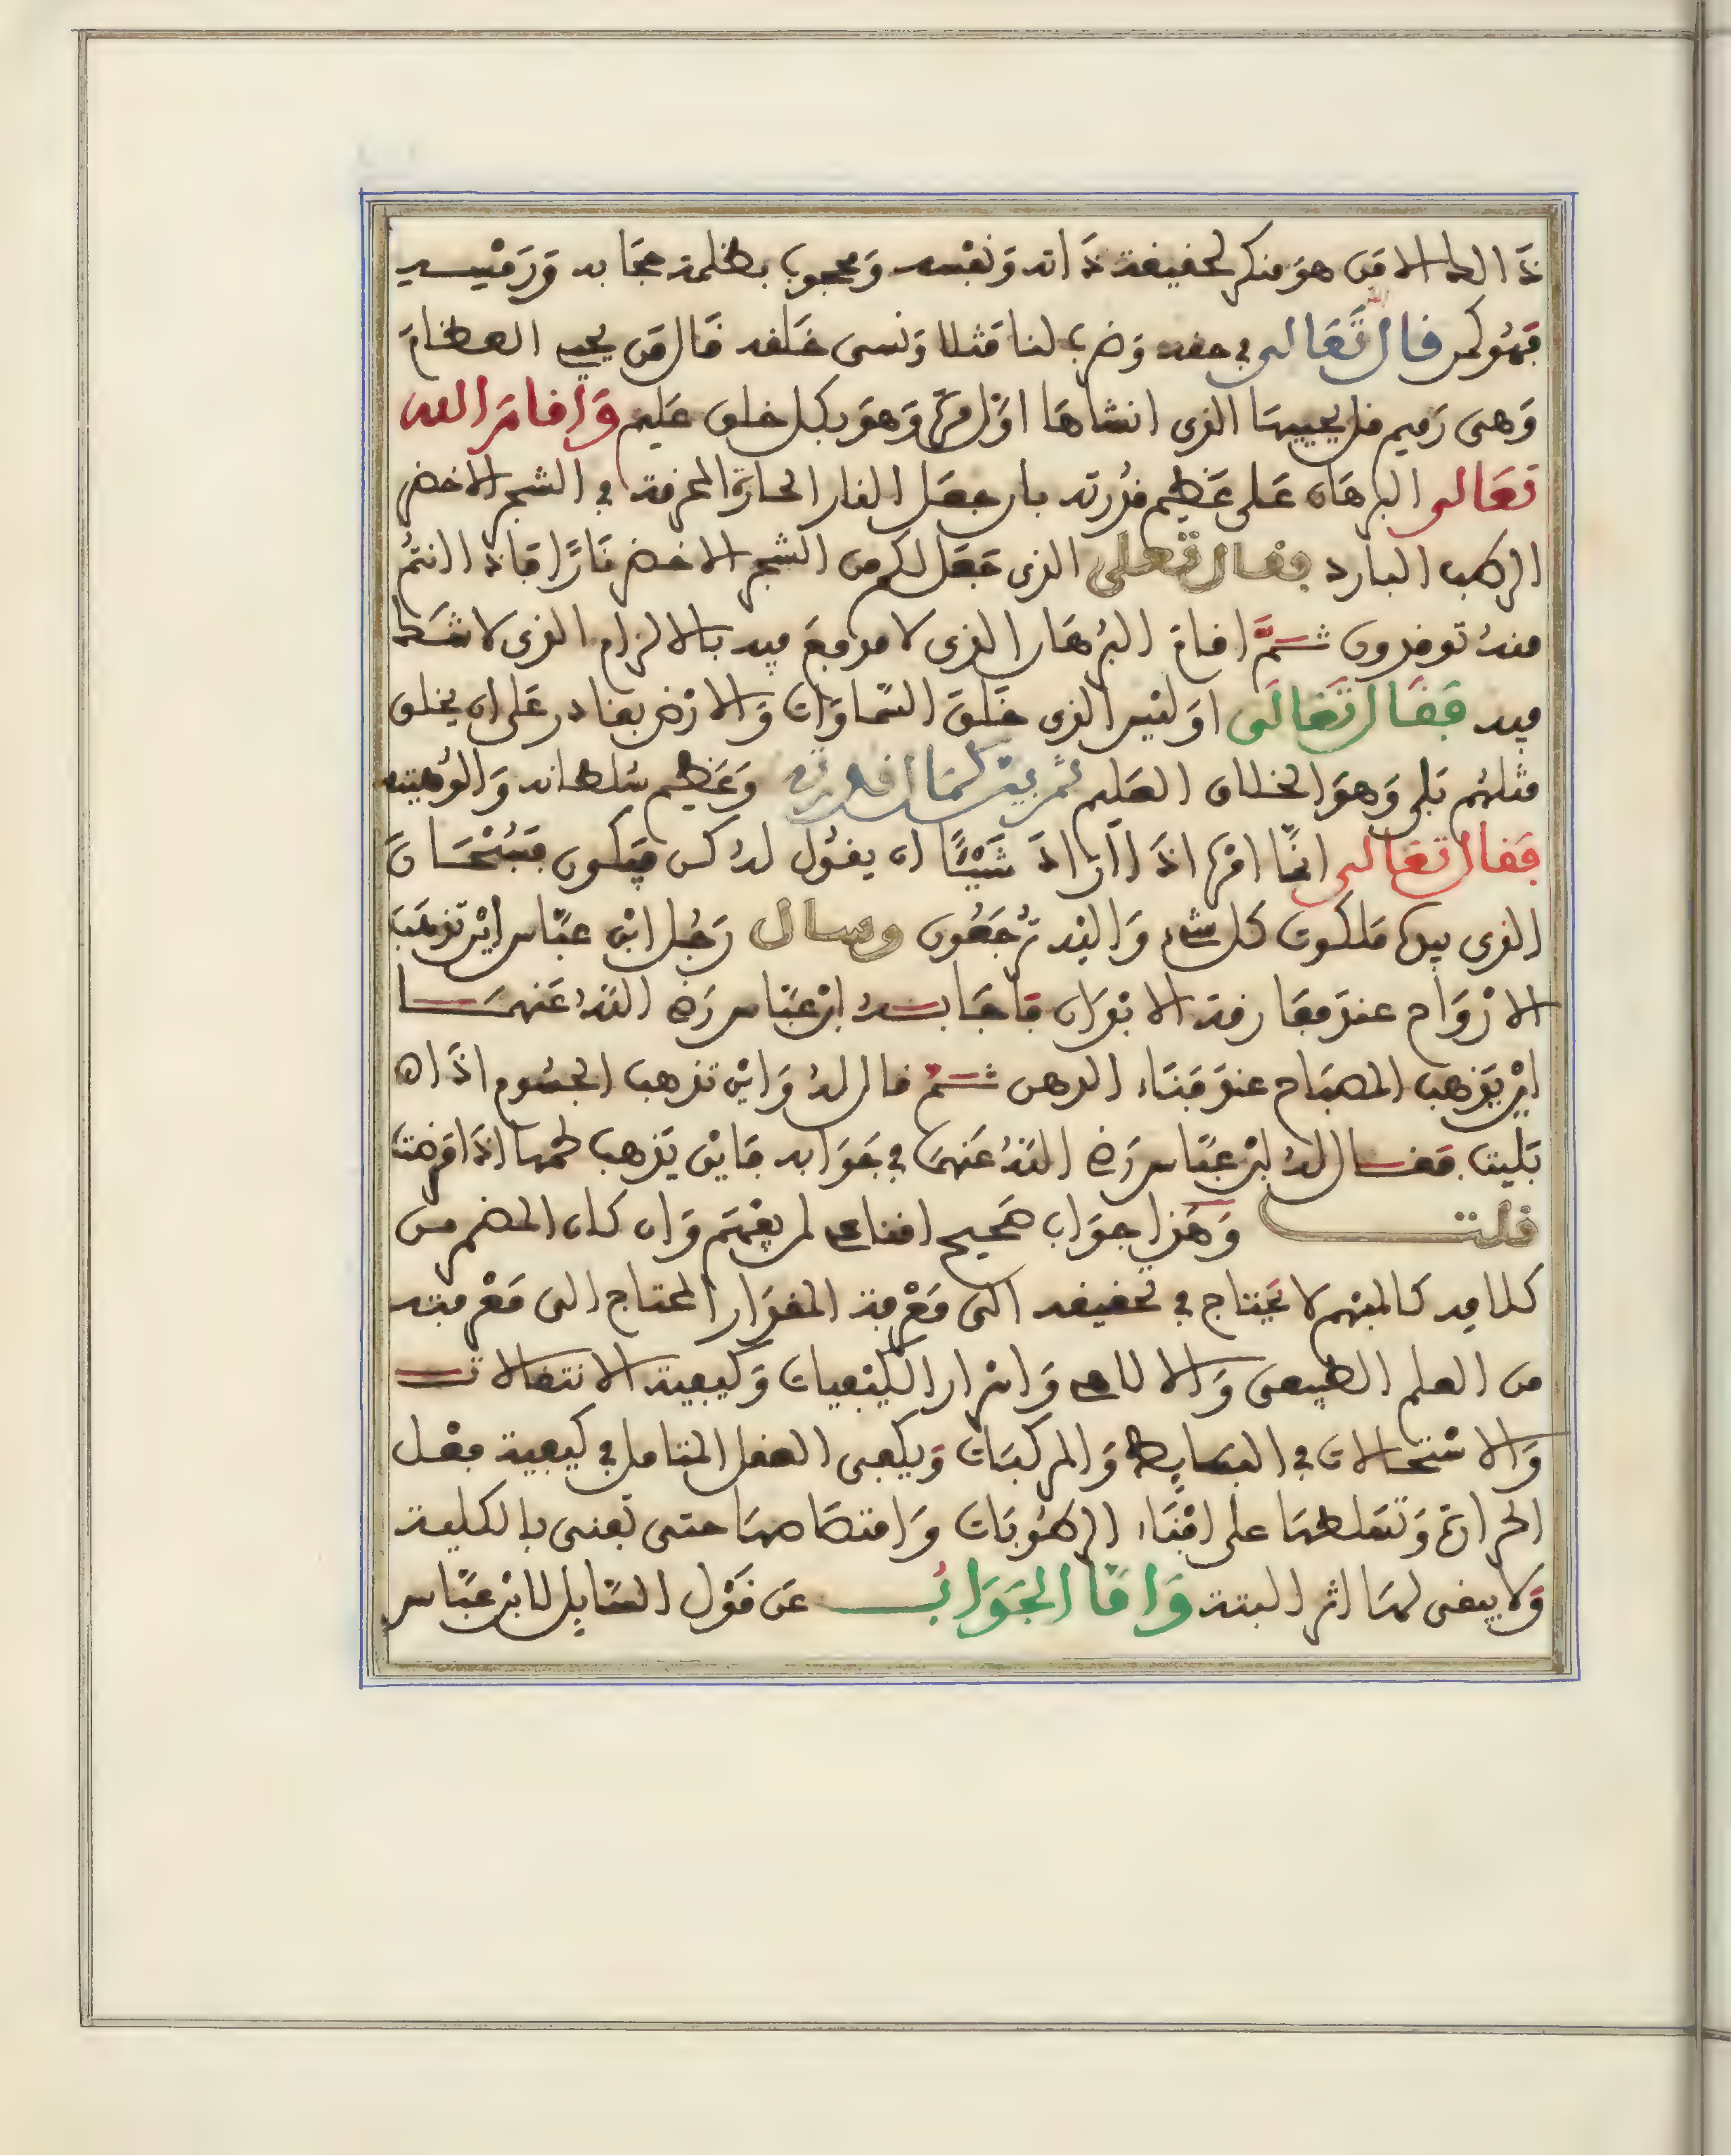 ذَالك الا مَن هوَ منكر لحقيقة ذَاته وَنفْسه وَمحجوب بظلمة حجَابه وَرَمْسه
فَهُوَ كمن قال تَعَالى في حقه وَضرب لنا مَثلا وَنسى خَلقه قَال مَن يحيي العظامَ
وَهى رَميم قل يحييهَا الذى انشاهَا اوَّل مرّة وَهوَ بكل خلق عَليم وَاقامَ الله
تعَالى البرهَان عَلى عَظيم قُدرته بان جعَل النار الحارة المحرقة في الشجر الاخضر
الرطب البارد فقال تعلى الذى جَعَل لكم من الشجر الاخضر نَارًا فَاذا انتمُ
منهُ توقدون ثمَّ اقامَ البُرهَان الذى لا مدفعَ فيه بالالزام الذى لا شَك
فيه فَقَال تَعَالَى اوَليْس الذى خَلقَ السّمَاوَات وَالارْض بقادر عَلى ان يخلق
مثلهُم بَلى وَهوَ الخلاق العَليم ثم بين كمَال قدرته وَعَظيم سُلطانه وَالُوهيته
فَقال تعَالى انمّا امْره اذَا ارَادَ شَيْئًا ان يقُول لهُ كن فيَكون فسُبْحَانَ
الذى بيده مَلكوت كل شىء وَاليْه تُرجَعُون وسال رَجُل ابْن عبّاس ايْن تذهَب
الارْوَاح عندَ مفَارقة الابْدَان فَاجَابهُ ابْن عَبّاس رَضي اللهُ عَنهمَا
ايْن يَذهب المصبَاح عندَ فَنَاء الدهن ثمُ قال لهُ وَايْن تذهب الجسُوم اذَاا
بَليت فقال لهُ ابْن عَبّاس رَضي اللهُ عَنهمَا في جَوَابه فَايْن يَذهب لحمهَا اذَا مَرضت
قلت وَهَذا جوَاب صَحيح اقناعي لم يفهَم وَان كان الخصم من
كلامه كالمبهم لا يَحتاج في تحقيقه الى مَعْرفة المقدَار المحتاج الى مَعْرفته
من العلم الطبيعى وَالالاهي وَاسْرار الكيْفيات وَكيفية الانتقالات
وَالاسْتحَالات في البسَايط وَالمركبَات وَيكفى العقل المتامل في كيفية فعْل
الحرارة وَتسَلطهَا على افْنَاء الرطُوبَات وَامتصَاصهَا حتى تفنى بالكلية
وَلا يبقى لهَا اثر البتة وَامّا الجَوَابُ عَن قَوْل السّايل لابْن عَبّاس